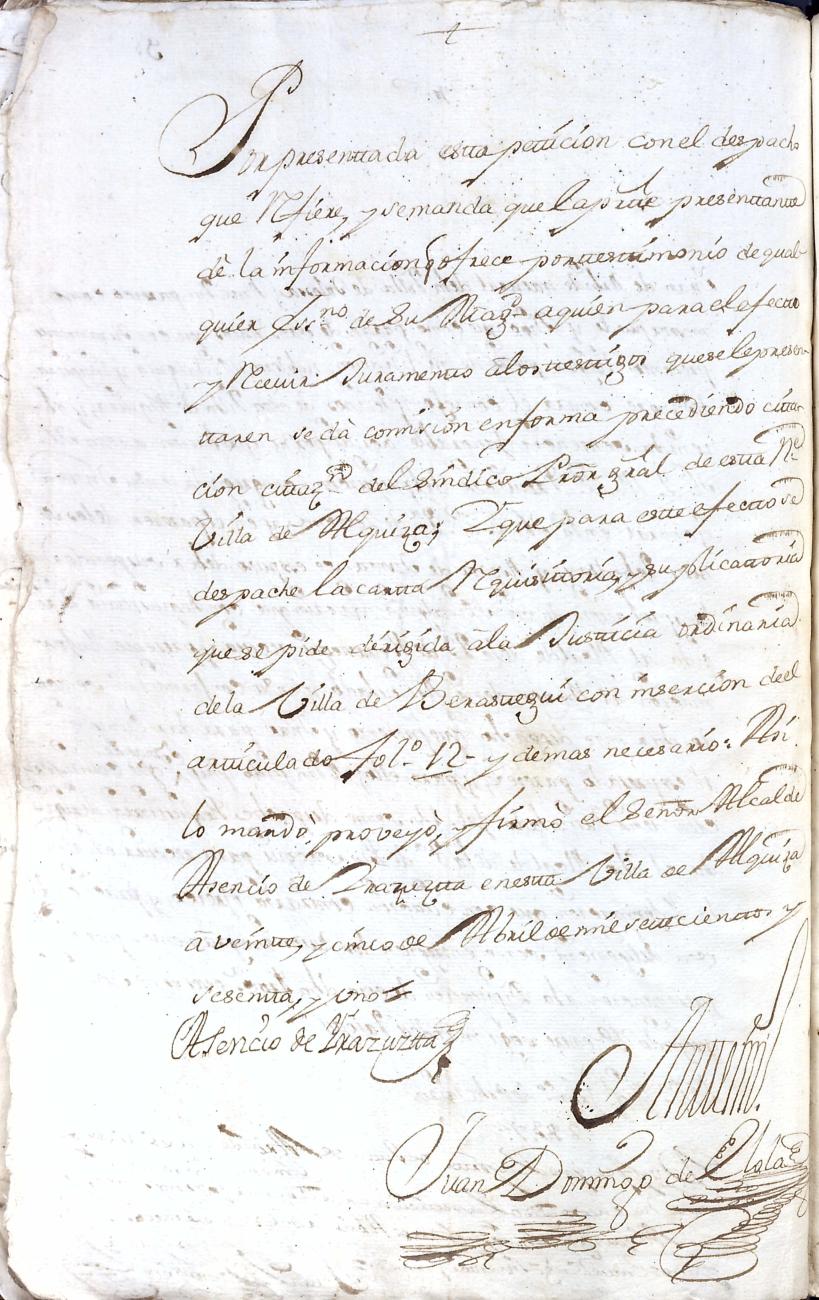 Por presenttada estta petticion con el despacho
que Rfiere, y se manda que la prtte presenttantte
dê la informacion q ofrece por ttesttimonio de qual-
quier Ssno de Su Magd aquien para el efectto
y Recivir Juramentto âlos ttesttigos que se le presen-
ttaren se dà comision en forma precediendo citta-
cion cittazon del Sindico Pror gral de estta Ne
Villa de Alquiza; Y que para estte efectto se
despache la cartta Requisittoria, y suplicattoria
que se pide dirigida âla Justticia ordinaria
dela Villa de Berasttegui con insercion de el
artticulado folo 12 y demas necesario: Asi
lo mandò, proveyò, y firmò el Señor Alcalde
Asencio de Yrazuztta en estta Villa de Alquiza
â veintte, y cinco de Abril de mil settecienttos y
sesentta, y uno
Asencio de Yrazuztta
Anttemi.
Juan Domingo de Elola